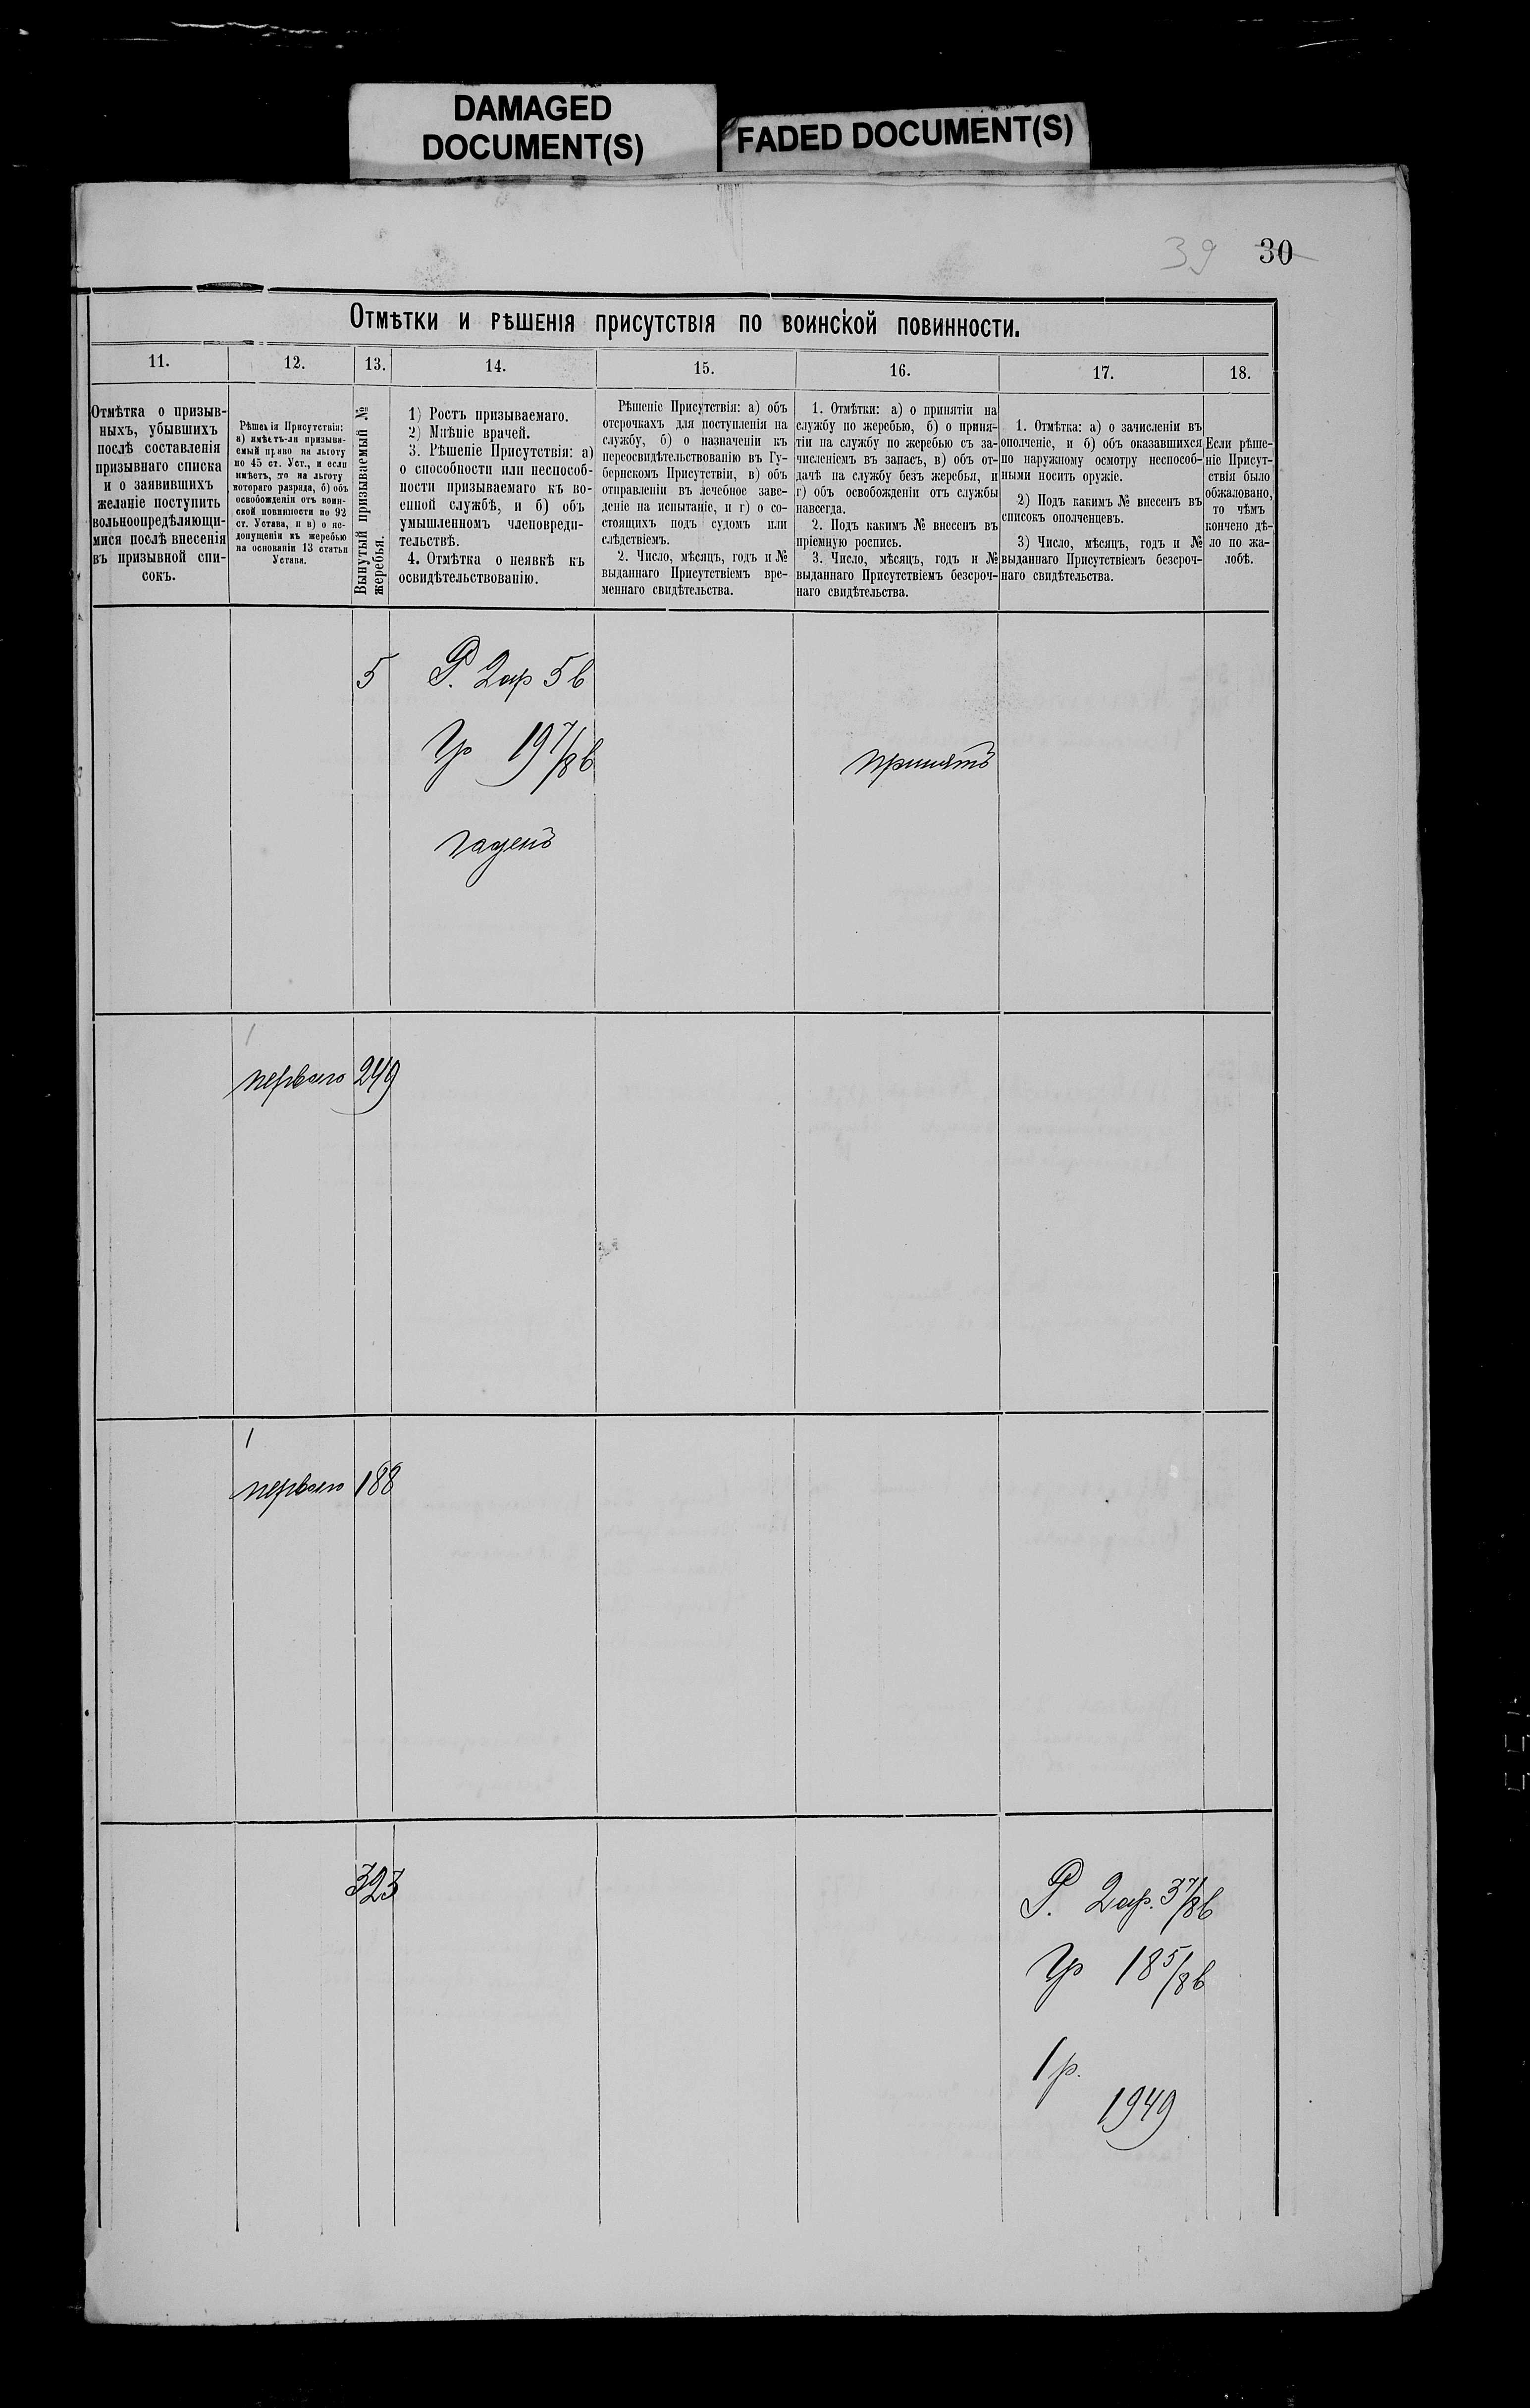 DAMAGED
DOCUMENT(S)
FADED DOCUMENT(S)
39 30
Отмѣтки и рѣшенія присутствія по воинской повинности.
11.
12.
13.
14.
15.
16.
17.
18.
Отмѣтка о призыв-
ныхъ, убывшихъ
послѣ составленія
призывнаго списка
и о заявившихъ
желаніе поступить
вольноопредѣляющи-
мися послѣ внесенія
въ призывной спи-
сокъ.
Рѣшенія Присутствія:
а) имѣетъ-ли призыва-
емый право на льготу
по 45 ст. Уст., и если
имѣетъ, то на льготу
котораго разряда, б) объ
освобожденіи отъ воин-
ской повинности по 92
ст. Устава, и в) о не-
допущеніи къ жеребью
на основаніи 13 статьи
Устава.
Вынутый призываемый №
жеребья.
1) Ростъ призываемаго.
2) Мнѣніе врачей.
3. Рѣшеніе Присутствія: а)
о способности или неспособ-
ности призываемаго къ во-
енной службѣ, и б) объ
умышленномъ членовреди-
тельствѣ.
4. Отмѣтка о неявкѣ къ
освидѣтельствованію.
Рѣшеніе Присутствія: а) объ
отсрочкахъ для поступленія на
службу, б) о назначеніи къ
переосвидѣтельствованію въ Гу-
бернскомъ Присутствіи, в) объ
отправленіи въ лечебное заве-
деніе на испытаніе, и г) о со-
стоящихъ подъ судомъ или
слѣдствіемъ.
2. Число, мѣсяцъ, годъ и №
выданнаго Присутствіемъ вре-
меннаго свидѣтельства.
1. Отмѣтки: а) о принятіи на
службу по жеребью, б) о приня-
тіи на службу по жеребью съ за-
численіемъ въ запасъ, в) объ от-
дачѣ на службу безъ жеребья, и
г) объ освобожденіи отъ службы
навсегда.
2. Подъ какимъ № внесенъ въ
пріемную роспись.
3. Число, мѣсяцъ, годъ и №
выданнаго Присутствіемъ безсроч-
наго свидѣтельства.
1. Отмѣтка: а) о зачисленіи въ
ополченіе, и б) объ оказавшихся
по наружному осмотру неспособ-
ными носить оружіе.
2) Подъ какимъ № внесенъ въ
списокъ ополченцевъ.
3) Число, мѣсяцъ, годъ и №
выданнаго Присутствіемъ безсроч-
наго свидѣтельства.
Если рѣше-
ніе Присут-
ствія было
обжаловано,
то чѣмъ
кончено дѣ-
ло по жа-
лобѣ.
5 Р. 2ар 5 в
Гр 19 7/8 в
принятъ
годенъ
1
перваго 249
1
перваго 188
323
Р. 2ар. 3 7/8 в
Гр 18 5/8 в
1 р.
1949